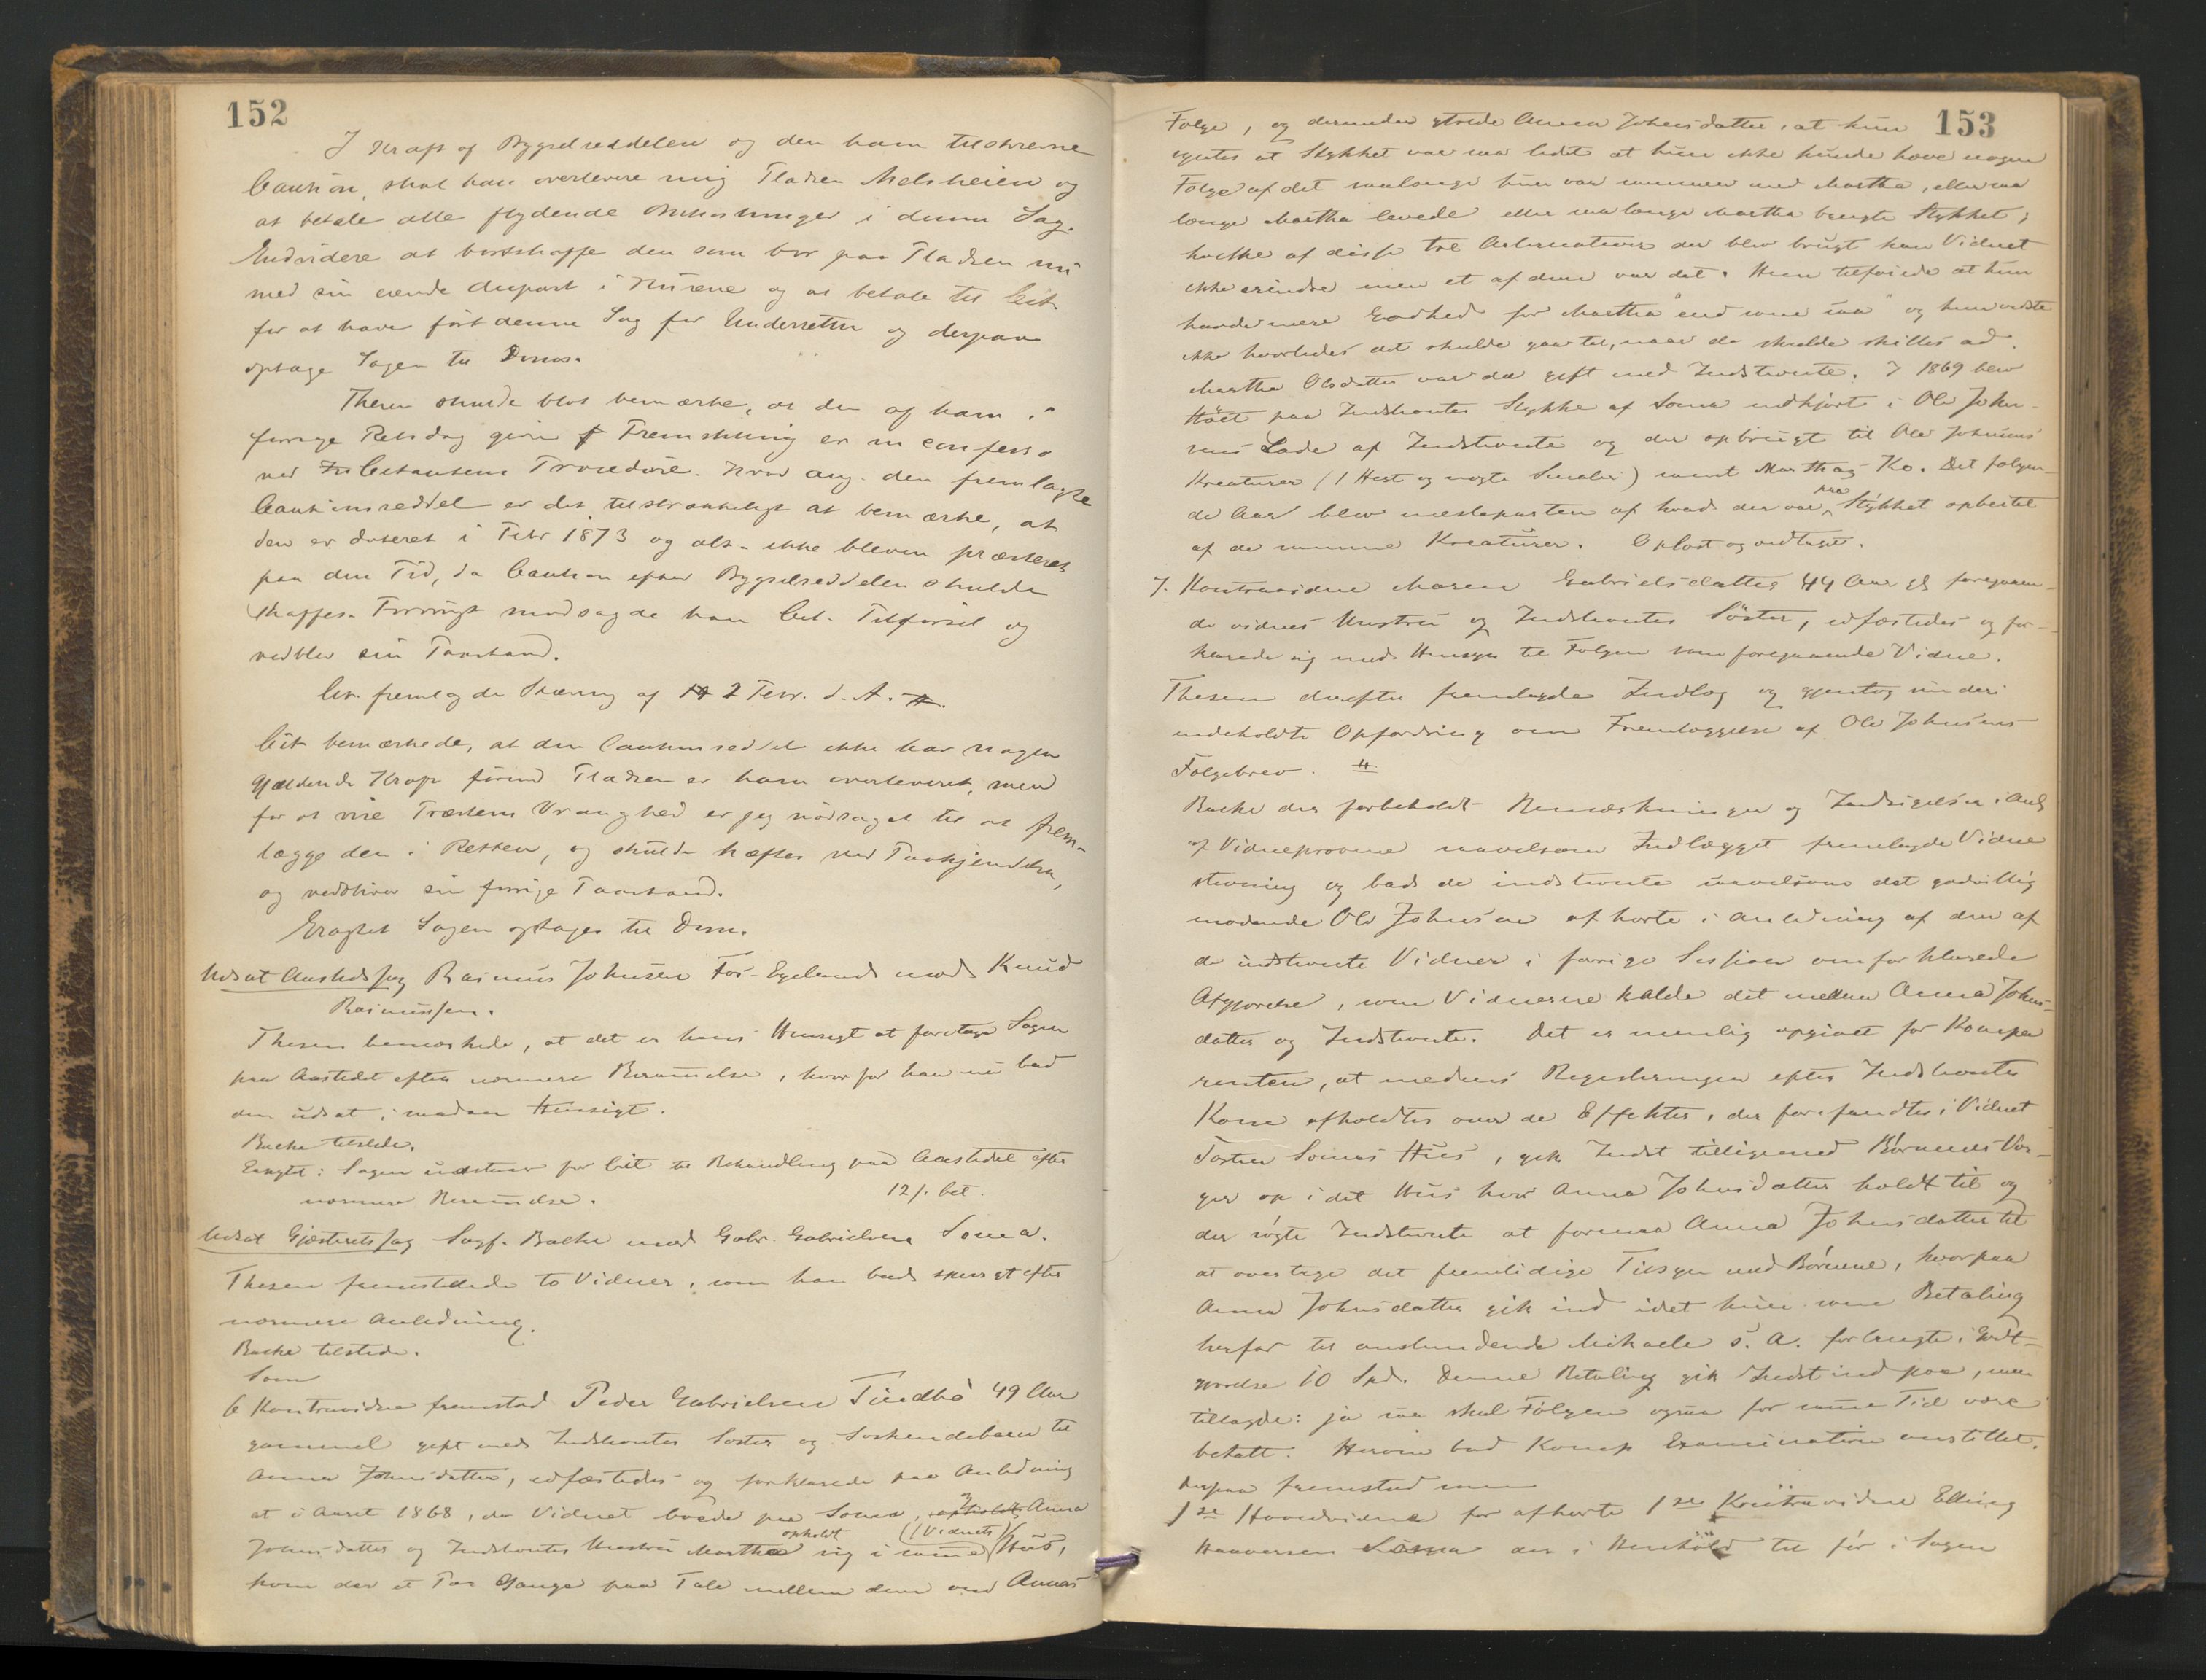 152
I Kraft af Bygselseddelen og den ham tilskrevne
Caution, skal han overlevere mig Pladsen Melsheien og
at betale alle flydende Bekostninger i denne Sag.
Endvidere at bortskaffe den som bor paa Pladsen nu
med sin eiende Anpart i Husene og at betale til Cit.
for at have ført denne Sag for Underretten og derpaa
optage Sagen til Doms.
Thesen skulde blot bemærke, at den af ham i
forrige Retsdag givne Fremstilling er in confesso
ved Citantens Procedure. Hvad ang. den fremlagte
Cautionsseddel er det tilstrækkeligt at bemærke, at
den er dateret i Febr 1873 og alts. ikke bleven præsteret
paa den Tid, da Caution efter Bygselseddelen skulde
skaffes. Forøvrigt modsagde han Cit. Tilførsel og
vedblev sin Paastand.
Cit. fremlagde Stævning af 2 Febr. d. A. #.
Cit bemærkede, at den Cautionseddel ikke har nogen
gjældende Kraft førend Pladsen er ham overleveret, men
for at vise Præstens Vranghed er jeg nødsaget til at frem-
lægge den i Retten, og skulde hæftes ved Paakjendelsen,
og vedbliver sin forrige Paastand.
Eragtet Sagen optages til Dom.
Udsat Aastedssag Rasmus Johnsen Fos-Egeland mod Knud
Rasmussen.
Thesen bemærkede, at det er hans Hensigt at foretage Sagen
paa Aastedet efter nærmere Berammelse, hvorfor han nu bad
den udsat i saadan Hensigt.
Backe tilstede.
Eragtet: Sagen udstaar for Cit til Behandling paa Aastedet efter
nærmere Berammelse. 12/. bet.
Udsat Gjæsteretssag Sagf. Backe mod Gabr. Gabrielsen Soma.
Thesen fremstillede to Vidner, som han bad spurgt efter
nærmere Anledning.
Backe tilstede.
Som
6 Kontravidne fremstod Peder Gabrielsen 49 Aar
gammel gift med Indstevntes Søster og Søskendebarn til
Anna Johnsdatter, edfæstedes og forklarede paa Anledning
at i Aaret 1868, da Vidnet boede paa Soma, Anna
Johnsdatter og Indstevntes Hustru Martha opholdt sig i samme (Vidnets) Hus,
kom der et Par Gange paa Tale mellem dem om Annas
153
Følge, og derunder ytrede Anna Johnsdatter, at hun
syntes at Stykket var saa lidet at hun ikke kunde have nogen
Følge af det saalænge hun var sammen med Martha, eller saa
længe Martha levede eller saa længe Martha brugte Stykket;
hvilke af disse tre Alternativer der blev brugt kan Vidnet
ikke erindre men et af dem var det. Hun tilføiede at hun
havde mere Godhed for Martha "end som saa" og hun vidste
ikke hvorledes det skulde gaa til, naar de skulde skilles ad.
Martha Olsdatter var da gift med Indstevnte. I 1869 blev
Høet paa Indstevntes Stykke af Soma indkjørt i Ole John-
sens Lade af Indstevnte og der opbrugt til Ole Johnsens
Kreaturer (1 Hest og nogle Smaler) samt Marthas Ko. Det følgen-
de Aar blev mesteparten af hvad der var paa Stykket opbeitet
af de samme Kreaturer. Oplæst og vedtaget.
7. Kontravidne Maren Gabrielsdatter 44 Aar gl foregaaen-
de vidnes Hustru og Indstevntes Søster, edfæstedes og for-
klarede sig med Hensyn til Følgen som foregaaende Vidne.
Thesen derefter fremlagde Indlæg og gjentog under
indeholdte Opfordring om Fremlæggelse af Ole Johnsens
Følgebrev. #
Backe der forbeholdt Bemærkninger og Indsigelser i Anl
af Vidneprovene saavelsom Indlægget fremlagde Vidne
stevning og bad de indstevnte saavelsom det godvillig
mødende Ole Johnsen afhørte i anledning af den af
de indstevnte Vidner i forrige Session omforklarede
Afgjørelse, som Vidnerne kalde det mellem Anna Johns-
datter og Indstevnte. Det er nemlig opgivet for Kompa
renten, at medens Registreringen efter Indstevntes
Kone afholdtes over de Effekter, der forefandtes i Vidnet
Torsten Somas Hus, gik Indst tilligemed Børnenes Vær-
ger op i det Hus hvor Anna Johnsdatter holdt til og
der søgte Indstevnte at formaa Anna Johnsdatter til
at overtage det fremtidige Tilsyn med Børnene, hvorpaa
Anna Johnsdatter gik ind idet hun som Betaling
herfor til anstundende Mikaeli s. A. forlangte i Godt-
gjørelse 10 Spd. Denne Betaling gik Indst ind paa, men
tillagde: ja saa skal Følgen ogsaa for samme Tid være
betalt. Herom bad Komp Examination anstillet.
Derpaa fremstod som
1ste Hovedvidne før afhørte 1ste Kontravidne Elling
Haaversen Soma der i Henhold til før i Sagen